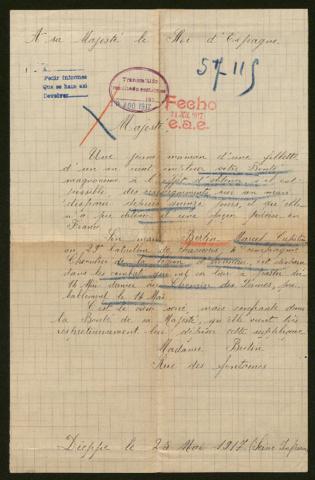 A sa Majesté le Roi d'Espagne.
57.115
Pedir informes
Que se haga así
Devolver
Transmitido
AGO 1917
Fecho
JUL 1917
e.a.e.
Majesté
Une jeune maman d'une fillette
d'un an vient implorer votre Bonté
magnanime à l'effet d'obtenir si
possible des renseignements sur son mari
disparu depuis jours et qu'elle
n'a pu obtenir d'une façon précise en
France
Son mari Bertin Marcel
au 29e bataillon de chasseurs à
est disparu
dans les combats qui ont eu lieu à partir du
14 Mai Chemin des Dames, pro
bablement le 14 Mai
C'est le cœur serré mais confiante dans
la Bonté de sa Majesté, qu'elle vient très
respectueusement lui déposer cette supplique
Madame Bertin
Rue des fontaines
Dieppe le 25 Mai 1917 (Seine Infre)